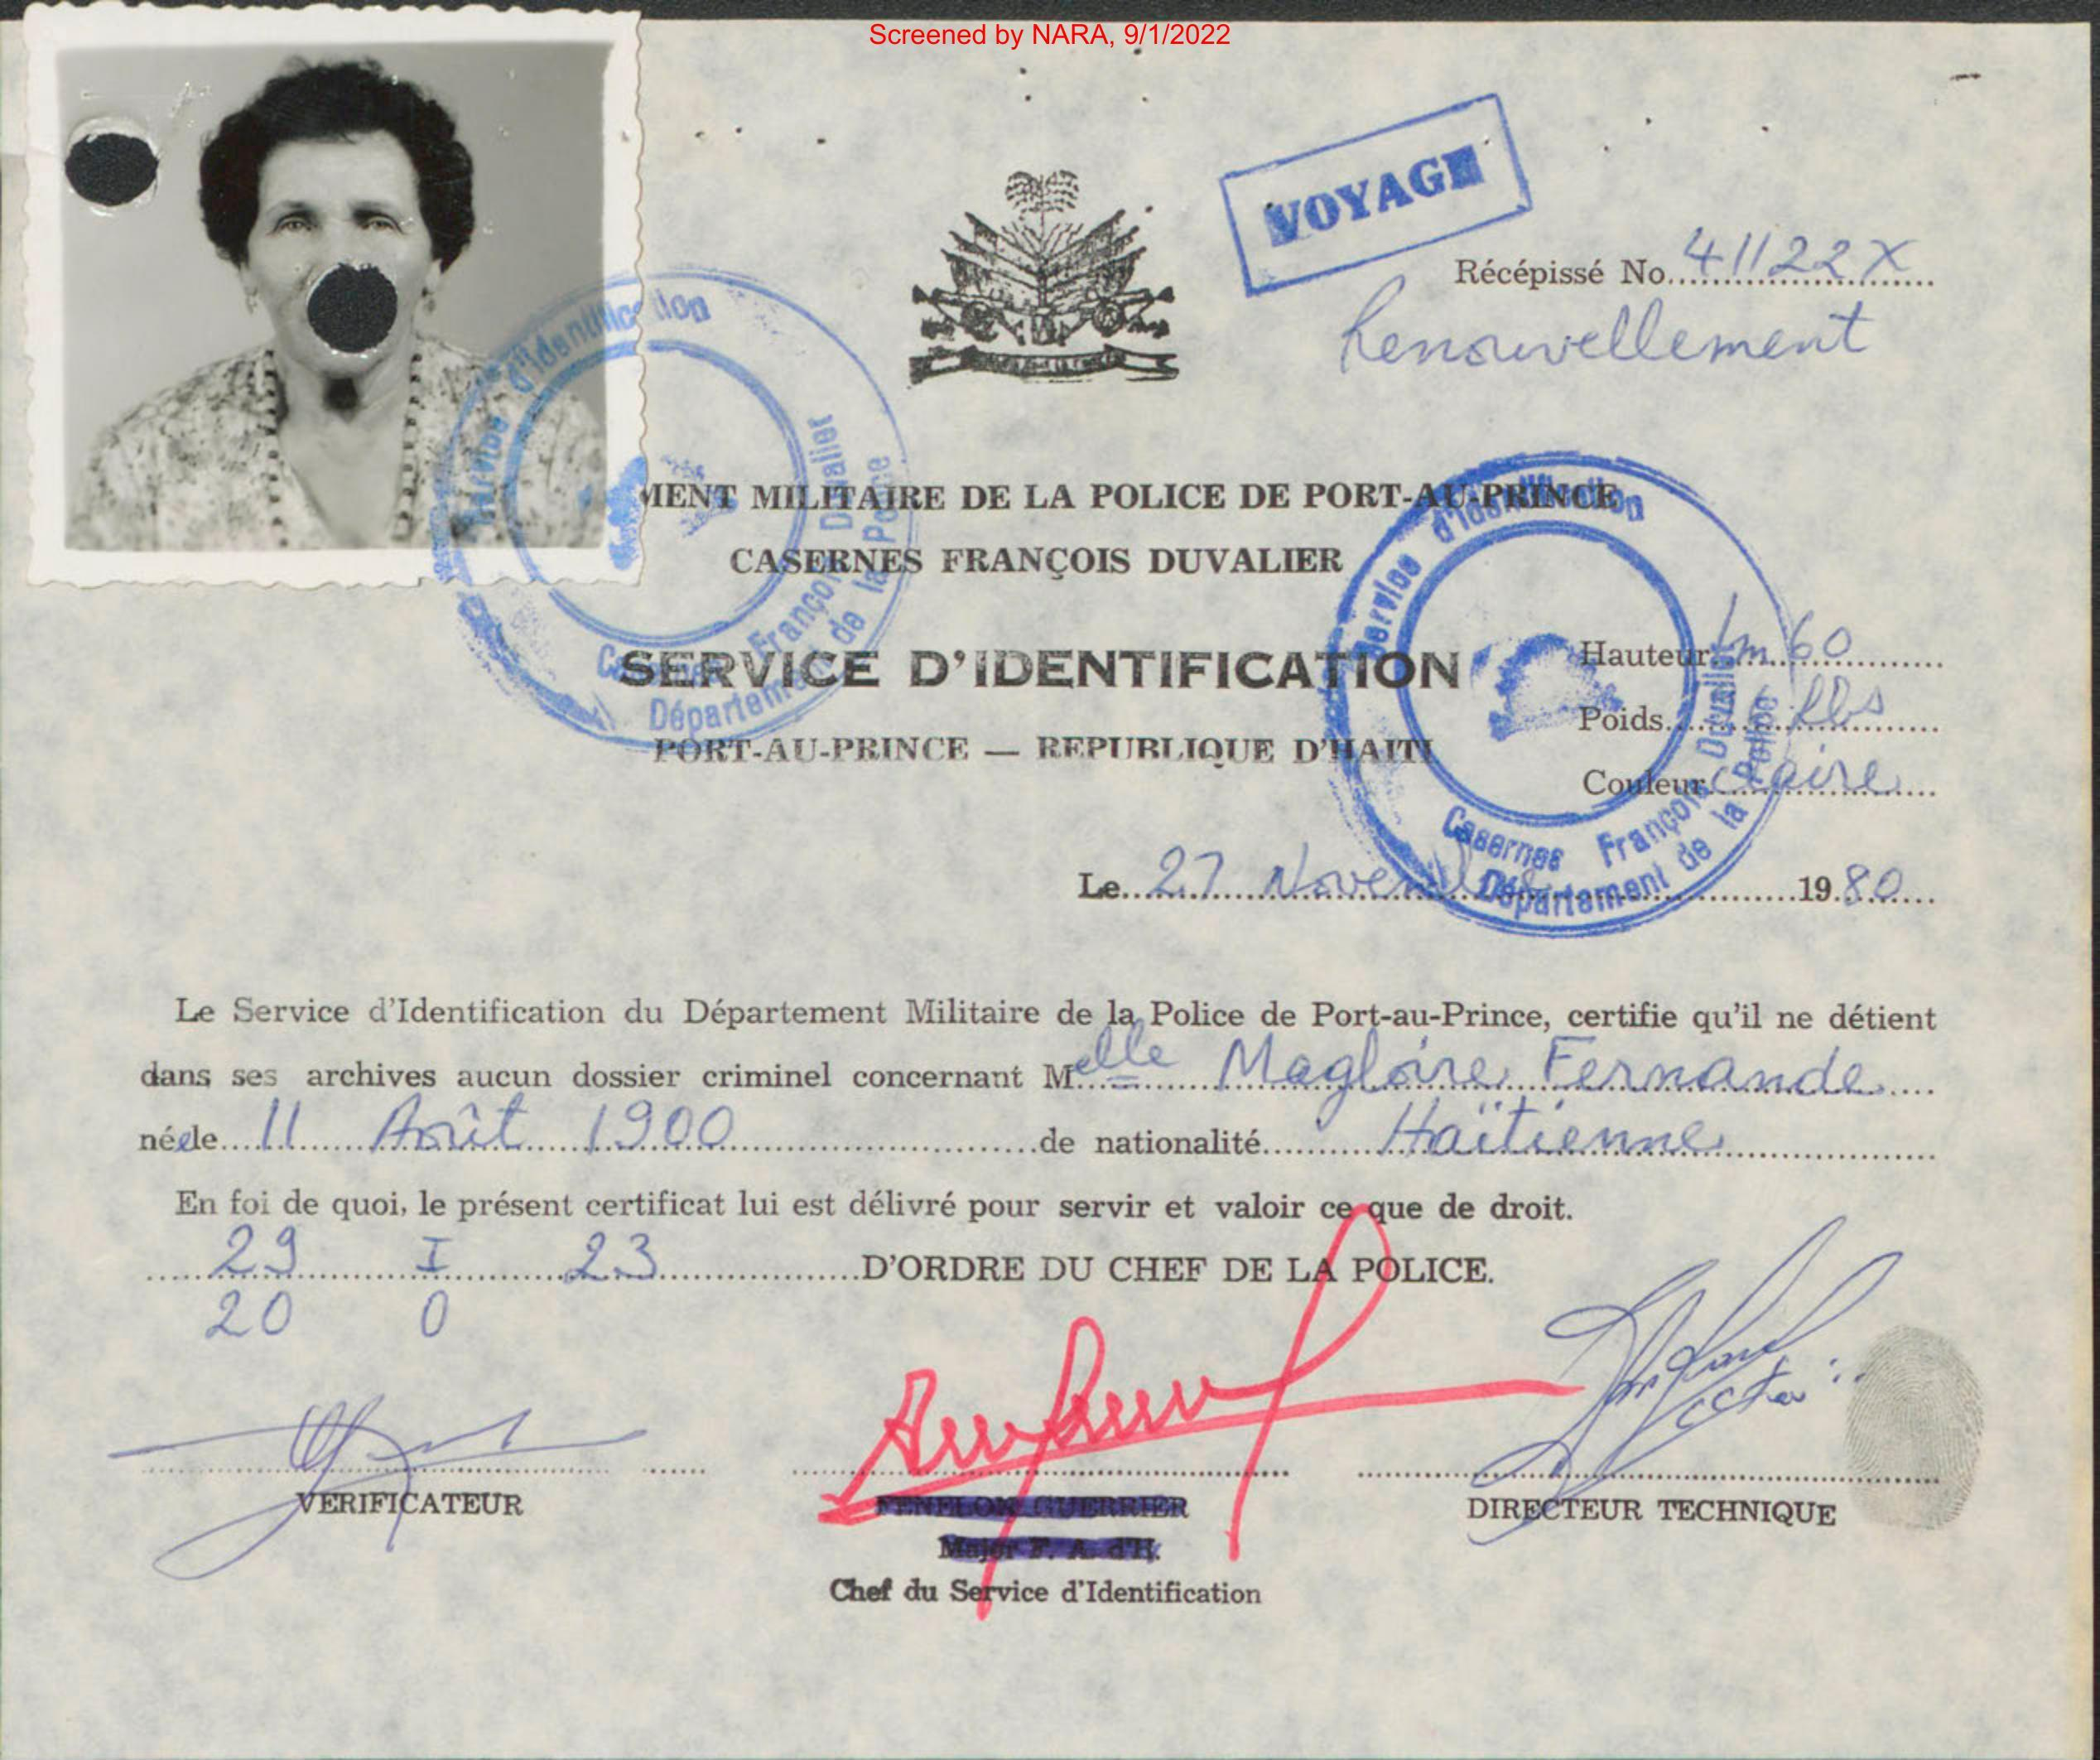 Screened by NARA, 9/1/2022
VOYAGE
Récépissé No. 41122X
Renouvellement
MENT MILITAIRE DE LA POLICE DE PORT-AU-PRINCE
CASERNES FRANÇOIS DUVALIER
SERVICE D'IDENTIFICATION
PORT-AU-PRINCE — REPUBLIQUE D'HAITI
Service d'Identification
Casernes François Duvalier
Département de la Police
Service d'Identification
Casernes François Duvalier
Département de la Police
Hauteur 1m 60
Poids lbs
Couleur Claire
Le 27 Novembre 1980
Le Service d'Identification du Département Militaire de la Police de Port-au-Prince, certifie qu'il ne détient
dans ses archives aucun dossier criminel concernant Melle Magloire Fernande
née le 11 Août 1900 de nationalité Haïtienne
En foi de quoi, le présent certificat lui est délivré pour servir et valoir ce que de droit.
29 I 23 D'ORDRE DU CHEF DE LA POLICE.
20 0
VERIFICATEUR
FENELON GUERRIER
Major F. A. d'H.
Chef du Service d'Identification
DIRECTEUR TECHNIQUE